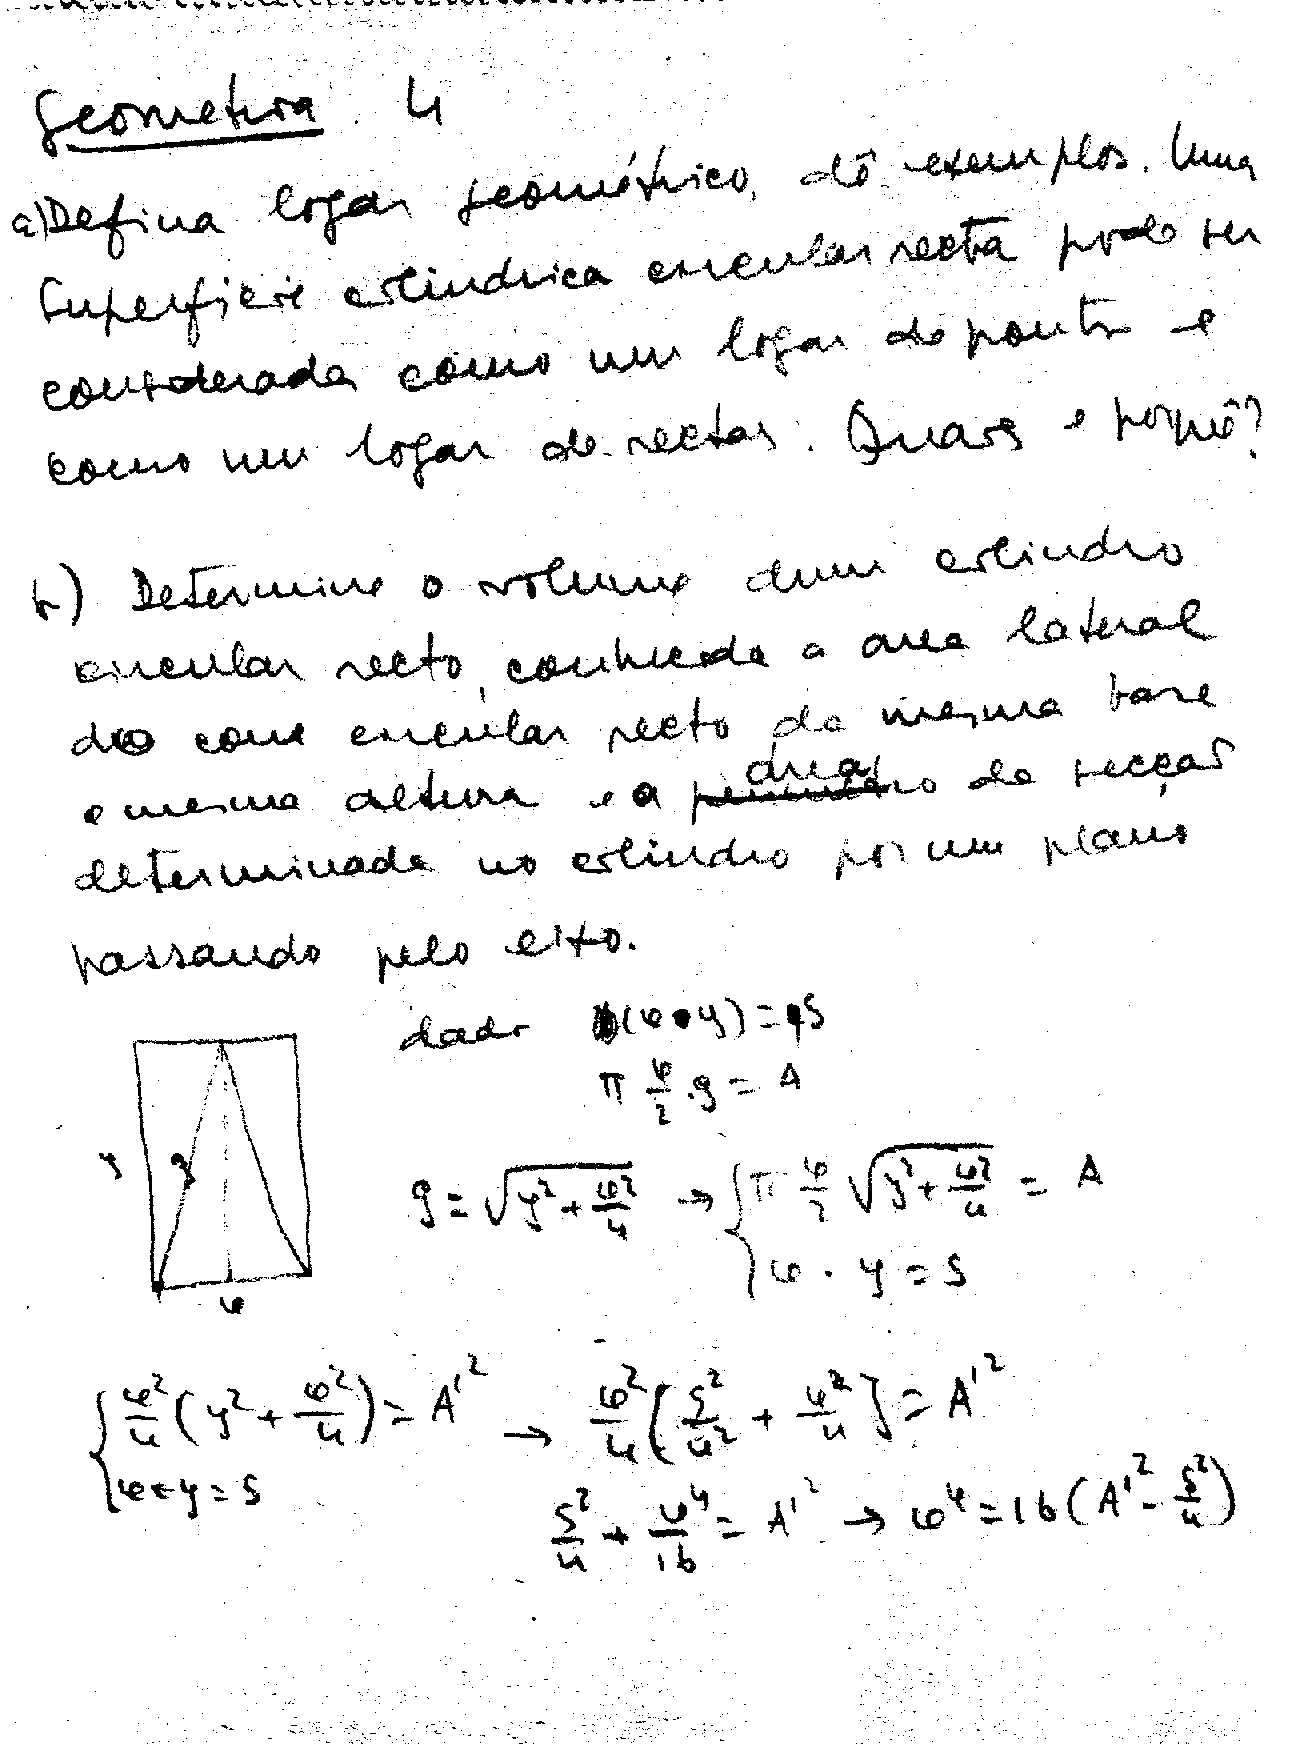 Geometria 4
a) Defina logar geométrico, dê exemplos. Uma
superfície cilíndrica circular recta pode ser
considerada como um logar de pontos e
como um logar de rectas. Quais e porquê?
b) Determine o volume dum cilindro
circular recto, conhecida a area lateral
do cone circular recto da mesma base
e mesma altura e a area da secção
determinada no cilindro por um plano
passando pelo eixo.
dado (φ•y) = S
π φ/2 . g = A
y g
g = √(y² + φ²/4) → { π φ/2 √(y² + φ²/4) = A
φ . y = S
φ
{ φ²/4 (y² + φ²/4) = A'² → φ²/4 { S²/φ² + φ²/4 } = A'²
φ • y = S
S²/4 + φ⁴/16 = A'² → φ⁴ = 16 (A'² - S²/4)